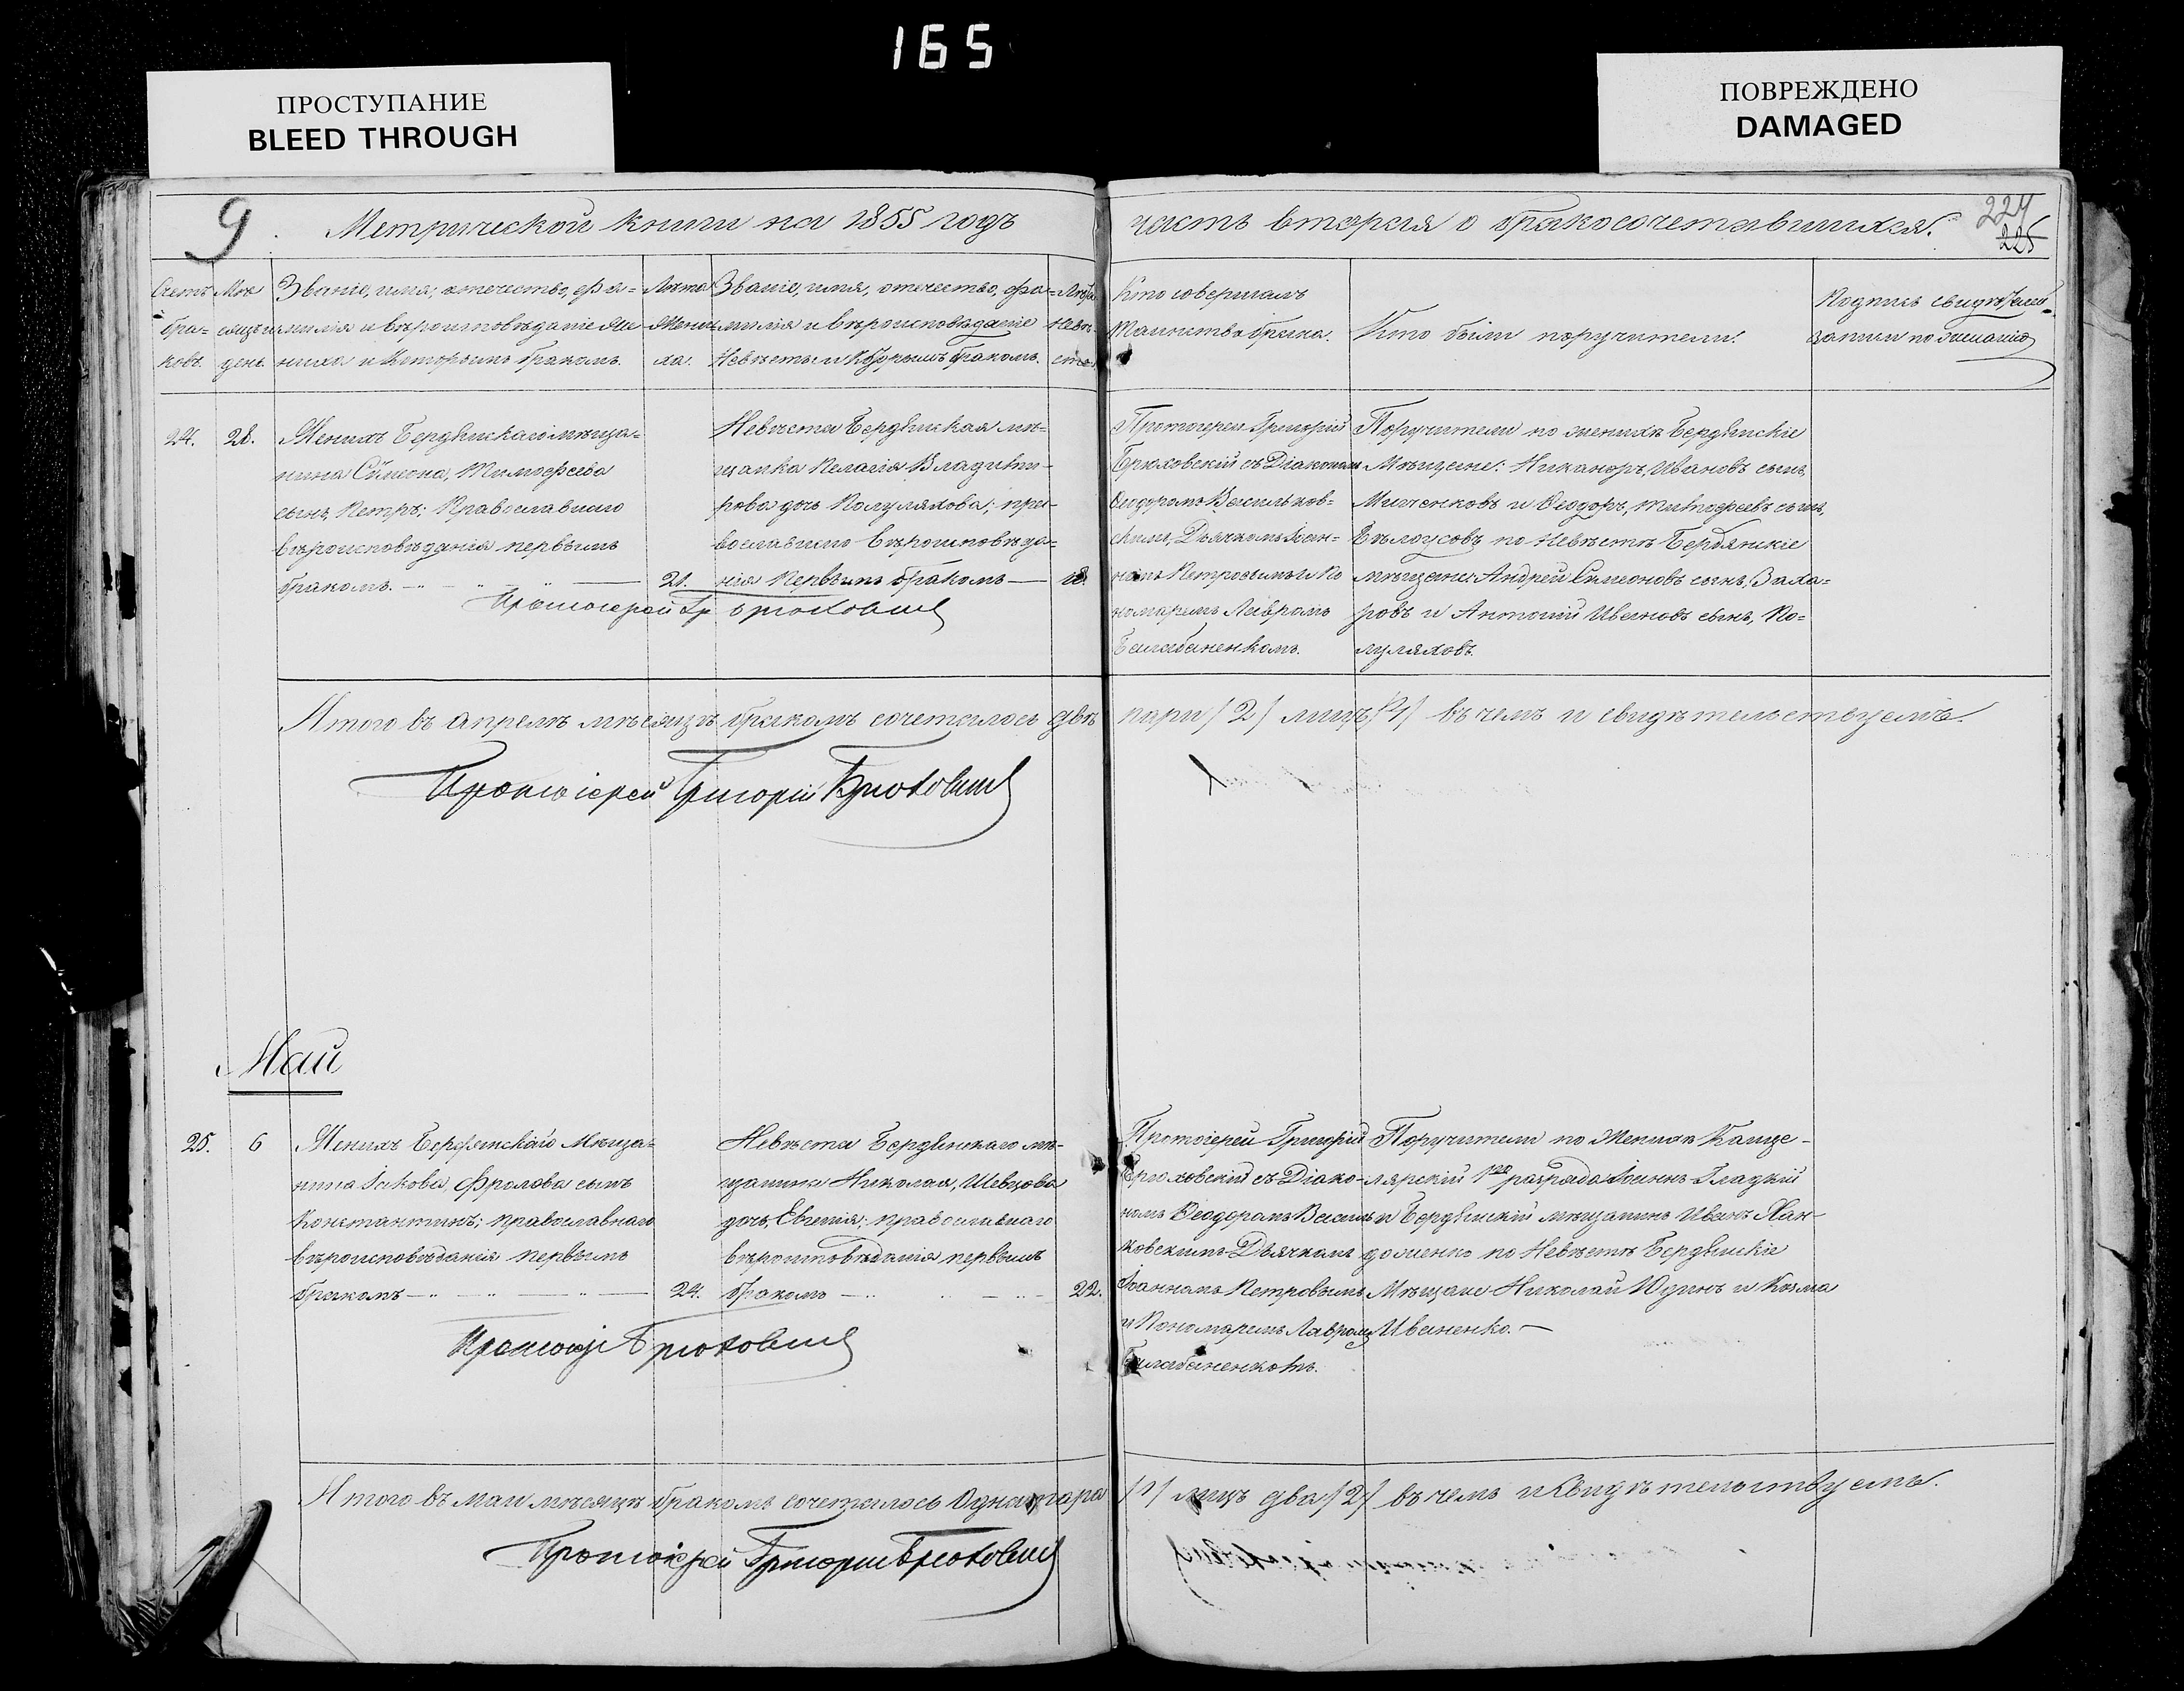 165
ПРОСТУПАНИЕ
BLEED THROUGH
ПОВРЕЖДЕНО
DAMAGED
9. Метрической книги на 1855 годъ
часть вторая о бракосочетавшихся.
224
225
Счетъ
бра=
ковъ.
Мѣ
сяцъ и
день.
Званіе, имя, отечество, фа=
милія и вѣроисповѣданіе Же
ниха и которымъ бракомъ.
Лѣта
Жени
ха.
Званіе, имя, отечество, фа=
милія и вѣроисповѣданіе
Невѣсты и которымъ бракомъ.
Лѣта
Невѣ
сты.
Кто совершалъ
Таинство брака.
Кто были поручители.
Подпись свидѣтелей
записи по желанію
24.
28.
Женихъ Бердянскаго мѣща=
нина Сѵмеона, Тимофеева
сынъ, Петръ; Православнаго
вѣроисповѣданія первымъ
бракомъ.
21.
Невѣста Бердянская мѣ=
щанка Пелагія Владими-
рова дочь Полуляхова; пра-
вославнаго вѣроисповѣда=
нія первымъ бракомъ
18.
Протоіерей Гр Брюховскій
Протоіерей Григорій
Брюховскій съ Діакономъ
Ѳеодоромъ Васильков-
скимъ, Дьячкомъ Іоан-
номъ Петровымъ и По
номаремъ Лавромъ
Балабаненкомъ.
Поручители по женихѣ Бердянскіе
Мѣщане: Никаноръ, Ивановъ сынъ,
Мисченковъ и Ѳеодоръ, Тимофеевъ сынъ,
Бѣлоусовъ по Невѣстѣ Бердянскіе
мѣщане Андрей Симеоновъ сынъ, Заха=
ровъ и Антоній Ивановъ сынъ, По=
луляховъ.
Итого въ апрелѣ мѣсяцѣ бракомъ сочеталось двѣ пары /2/ лицъ /4/ въ чемъ и свидѣтельствуемъ.
Протоіерей Григорій Брюховскій
Май
25.
6
Женихъ Бердянскаго Мѣща=
нина Іакова, Фролова сынъ
Константинъ; православнаго
вѣроисповѣданія первымъ
бракомъ
24.
Невѣста Бердянскаго мѣ-
щанина Николая, Шевцова
дочь, Евгенія; православнаго
вѣроисповѣданія первымъ
бракомъ
22.
Протоіер Брюховскій
Протоіерей Григорій
Брюховскій съ Діако-
номъ Ѳеодоромъ Василь
ковскимъ Дьячкомъ
Іоанномъ Петровымъ
и Пономаремъ Лавромъ
Балабаненкомъ.
Поручители по Женихѣ Канце-
лярскій 1го разряда Іоаннъ Гладкій
и Бердянскій мѣщанинъ Иванъ Хан-
доменко по Невѣстѣ Бердянскіе
Мѣщане Николай Юдинъ и Козма
Иваненко.
Итого въ маи мѣсяцѣ бракомъ сочеталось Одна пара /1/ лицъ два /2/ въ чемъ и свидѣтельствуемъ.
Протоіерей Григорій Брюховскій